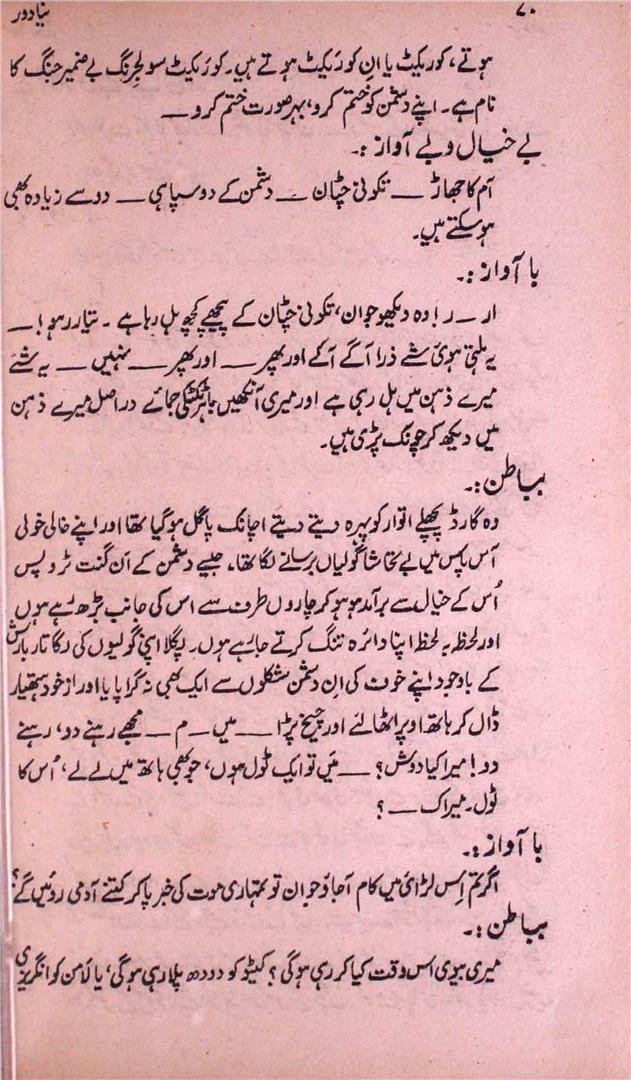 ۷۰ نیا دور
ہوتے، کوریکیٹ یا اِن کورَیکٹ ہوتے ہیں۔ کورَیکٹ سولجرنگ بے ضمیر جنگ کا
نام ہے۔ اپنے دشمن کو ختم کرو، بہر صورت ختم کرو ــــ
بے خیال و بے آواز :۔
آم کا جھاڑ ــــ تکونی چٹان ــــ دشمن کے دو سپاہی ــــ دو سے زیادہ بھی
ہو سکتے ہیں۔
با آواز :۔
ار ــ ر! وہ دیکھو جوان، تکونی چٹان کے پیچھے کچھ ہل رہا ہے ۔ تیار رہو! ــــ
یہ ہلتی ہوئی شے ذرا آگے آکے اور پھر ــــ اور پھر ــــ نہیں ــــ یہ شے
میرے ذہن میں ہل رہی ہے اور میری آنکھیں باہر ٹکٹکی جمائے دراصل میرے ذہن
میں دیکھ کر چونک پڑی ہیں۔
بباطن :۔
وہ گارڈ پچھلے اتوار کو پہرہ دیتے دیتے اچانک پاگل ہو گیا تھا اور اپنے خالی خولی
آس پاس میں بے تحاشا گولیاں برسانے لگا تھا، جیسے دشمن کے اَن گنت ٹروپس
اُس کے خیال سے برآمد ہو ہو کر چاروں طرف سے اس کی جانب بڑھ رہے ہوں
اور لحظہ بہ لحظہ اپنا دائرہ تنگ کرتے جا رہے ہوں۔ پگلا اپنی گولیوں کی لگاتار بارش
کے باوجود اپنے خوف کی اِن دشمن شکلوں سے ایک بھی نہ گرا پایا اور از خود ہتھیار
ڈال کر ہاتھ اوپر اٹھا لئے اور چیخ پڑا ــــ میں ــ م ــــ مجھے رہنے دو، رہنے
دو! میرا کیا دوش؟ ــــ میں تو ایک ٹول ہوں، جو بھی ہاتھ میں لے لے، اُس کا
ٹول۔ میرا ک ــــ ؟
با آواز :۔
اگر تم اِس لڑائی میں کام آ جاؤ جوان تو تمہاری موت کی خبر پا کر کتنے آدمی روئیں گے؟
بباطن :۔
میری بیوی اس وقت کیا کر رہی ہو گی؟ کیٹو کو دودھ پلا رہی ہو گی، یا لامن کو انگریزی